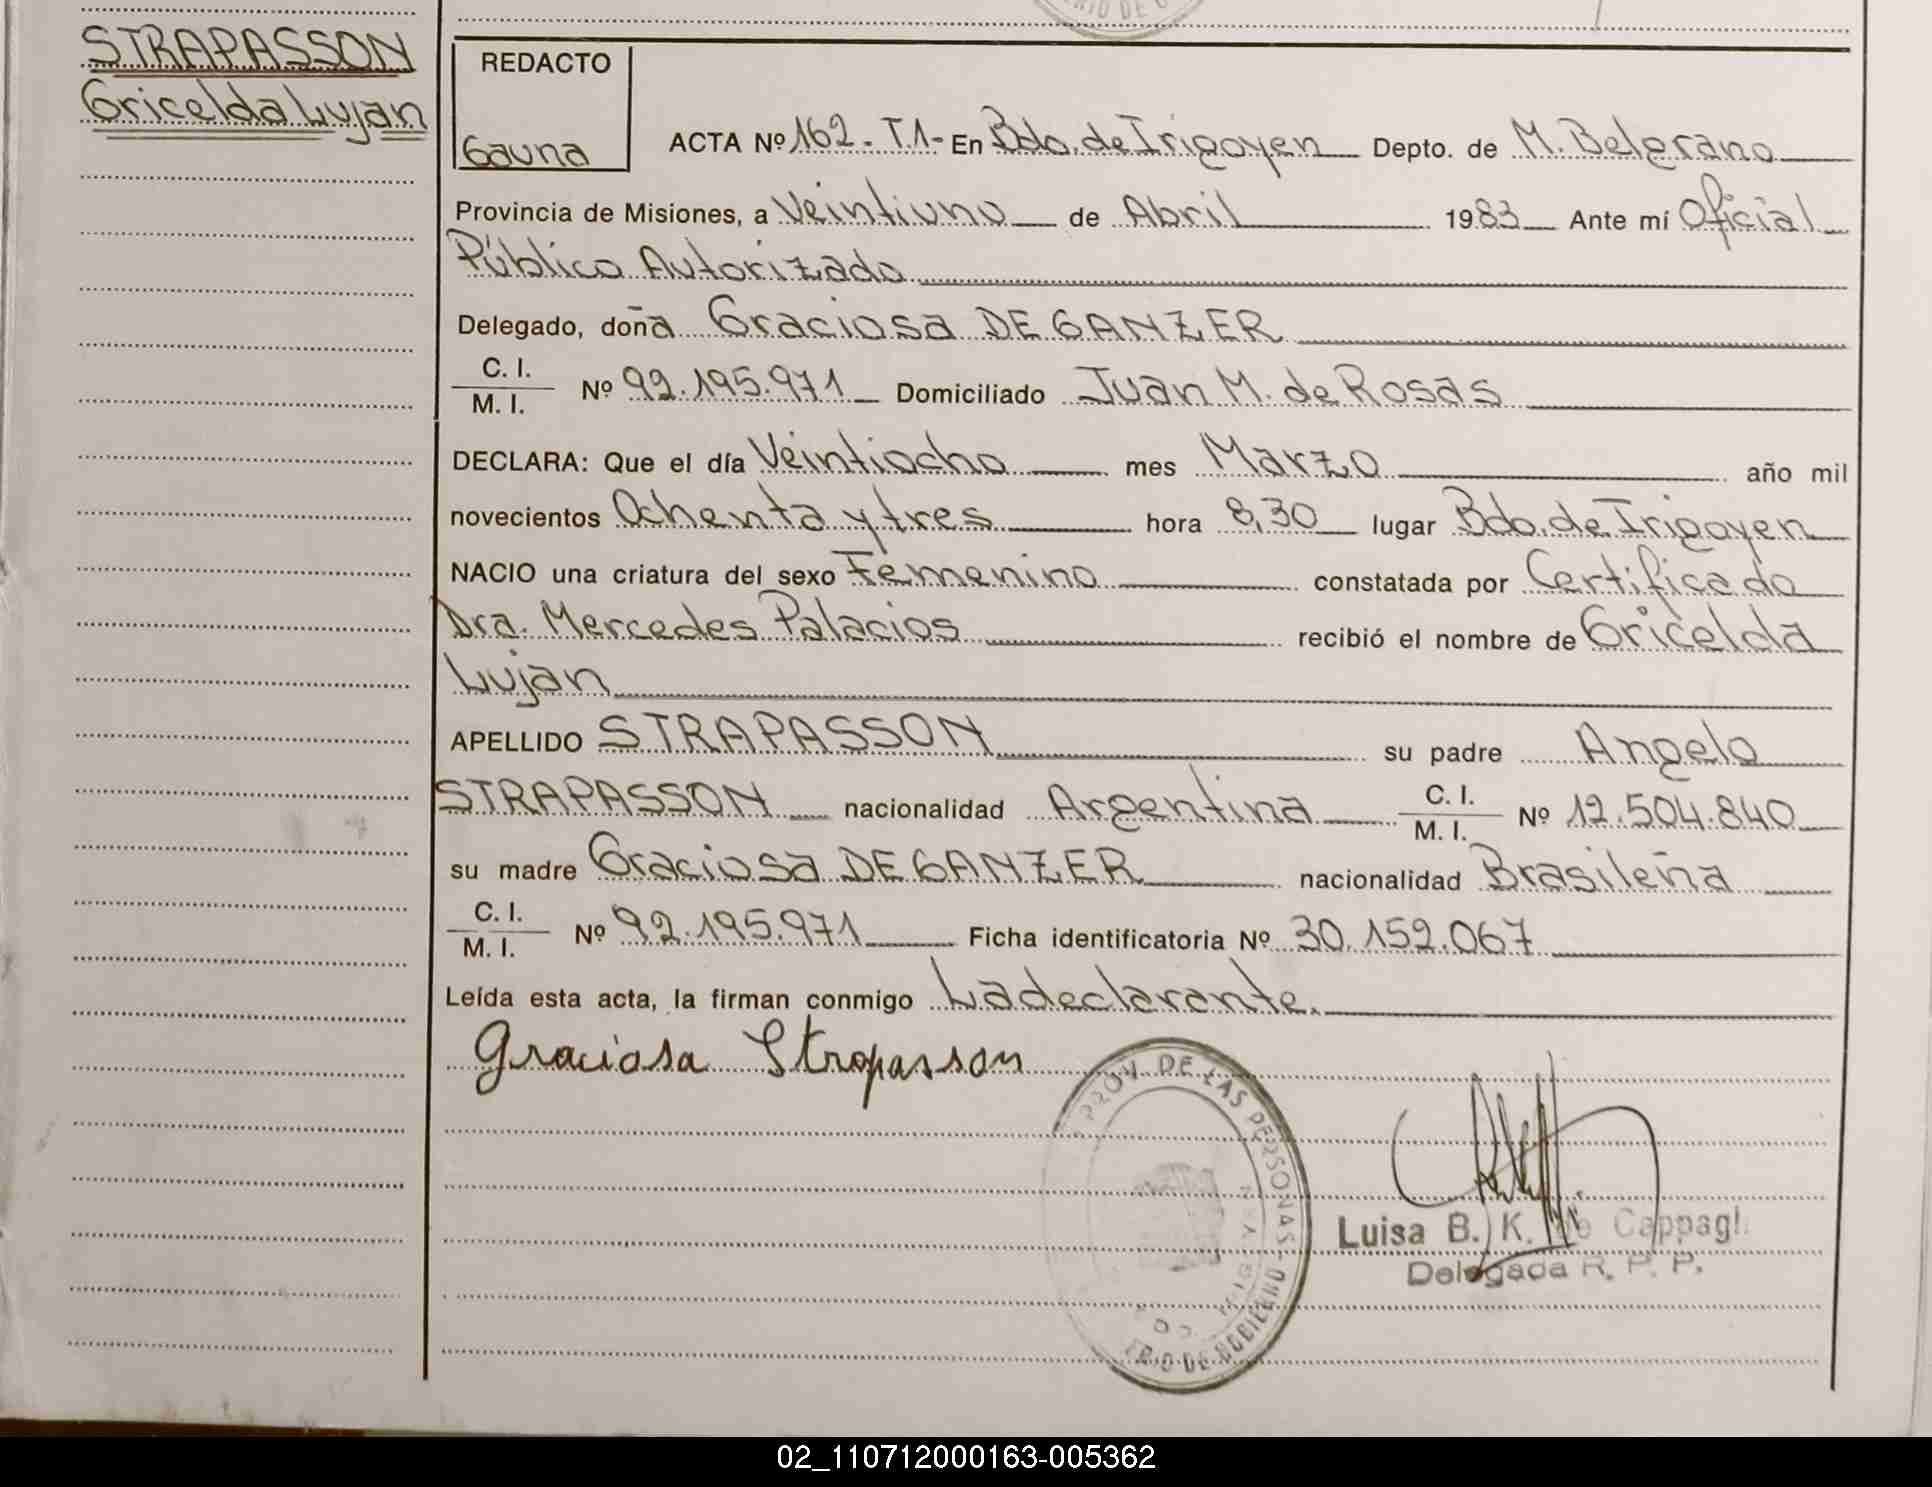 STRAPASSON
Gricelda Lujan
REDACTO
Gauna
ACTA Nº 162-T.1- En Bdo. de Irigoyen Depto. de M. Belgrano
Provincia de Misiones, a Veintiuno de Abril 1983 Ante mí Oficial
Público Autorizado
Delegado, doña Graciosa DE GANZER
C. I.
M. I. Nº 92.195.971 Domiciliado Juan M. de Rosas
DECLARA: Que el día Veintiocho mes Marzo año mil
novecientos Ochenta y tres hora 8,30 lugar Bdo. de Irigoyen
NACIO una criatura del sexo Femenino constatada por Certificado
Dra. Mercedes Palacios recibió el nombre de Gricelda
Lujan
APELLIDO STRAPASSON su padre Angelo
STRAPASSON nacionalidad Argentina C. I. M. I. Nº 12.504.840
su madre Graciosa DE GANZER nacionalidad Brasileña
C. I.
M. I. Nº 92.195.971 Ficha identificatoria Nº 30.152.067
Leída esta acta, la firman conmigo La declarante.
Graciosa Strapasson
PROV. DE LAS PERSONAS
RIO DE GOBIERNO
Luisa B. K. de
Delegada R. P. P.
02_110712000163-005362